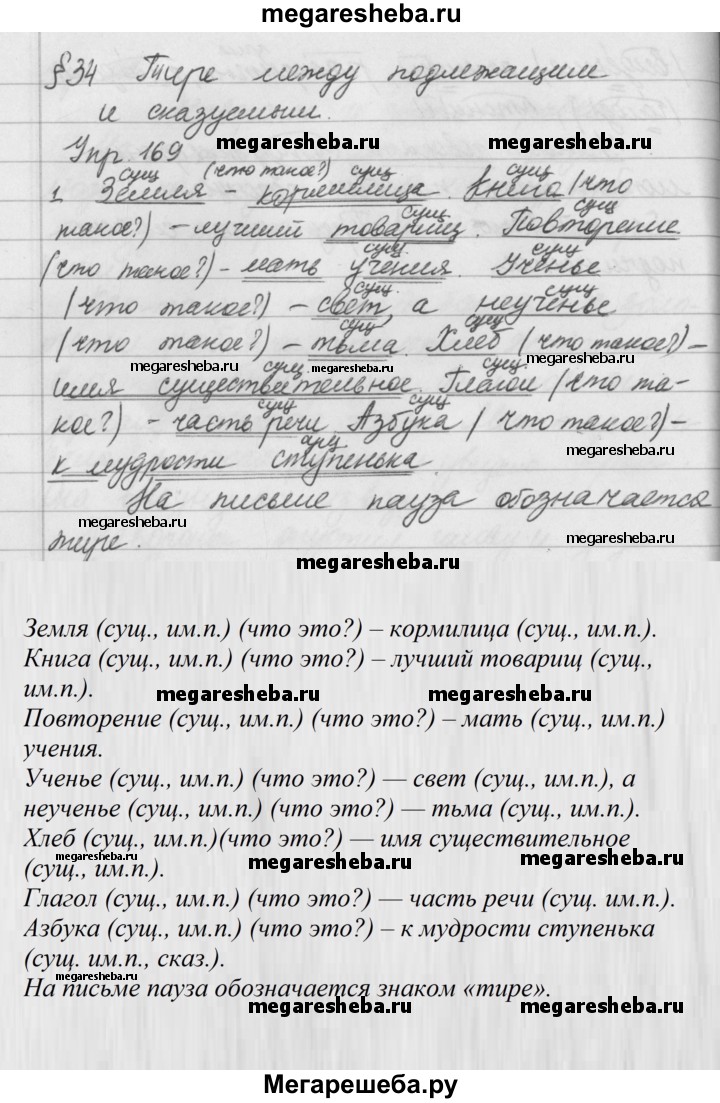 megaresheba.ru
§34 Тире между подлежащим
и сказуемым.
Упр. 169
megaresheba.ru megaresheba.ru
сущ (что такое?) сущ сущ
1. Земля - кормилица. Книга (что
сущ сущ
такое?) - лучший товарищ. Повторение
сущ сущ
(что такое?) - мать учения. Ученье
сущ. сущ
(что такое?) - свет, а неученье
сущ сущ
(что такое?) - тьма. Хлеб (что такое?) -
megaresheba.ru megaresheba.ru
сущ сущ.
имя существительное. Глагол (что та-
сущ сущ
кое?) - часть речи Азбука (что такое?) -
megaresheba.ru
к мудрости ступенька.
На письме пауза обозначается
megaresheba.ru
тире.
megaresheba.ru
megaresheba.ru
Земля (сущ., им.п.) (что это?) – кормилица (сущ., им.п.).
Книга (сущ., им.п.) (что это?) – лучший товарищ (сущ.,
им.п.).
megaresheba.ru megaresheba.ru
Повторение (сущ., им.п.) (что это?) – мать (сущ., им.п.)
учения.
Ученье (сущ., им.п.) (что это?) — свет (сущ., им.п.), а
неученье (сущ., им.п.) (что это?) — тьма (сущ., им.п.).
Хлеб (сущ., им.п.)(что это?) — имя существительное
megaresheba.ru megaresheba.ru megaresheba.ru
(сущ., им.п.).
Глагол (сущ., им.п.) (что это?) — часть речи (сущ. им.п.).
Азбука (сущ., им.п.) (что это?) – к мудрости ступенька
(сущ. им.п., сказ.).
megaresheba.ru
На письме пауза обозначается знаком «тире».
megaresheba.ru megaresheba.ru
Мегарешеба.ру